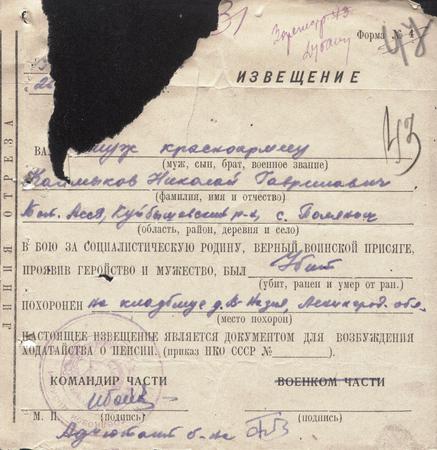 31
Форма № 4
47
ИЗВЕЩЕНИЕ
43
ЛИНИЯ ОТРЕЗА
ВА муж красноармеец
(муж, сын, брат, военное звание)
Николай Гаврилович
(фамилия, имя и отчество)
Куйбышевский р-н, с.
(область, район, деревня и село)
В БОЮ ЗА СОЦИАЛИСТИЧЕСКУЮ РОДИНУ, ВЕРНЫЙ ВОИНСКОЙ ПРИСЯГЕ,
ПРОЯВИВ ГЕРОЙСТВО И МУЖЕСТВО, БЫЛ Убит
(убит, ранен и умер от ран.)
ПОХОРОНЕН на кладбище д. В Назия, Ленинград. обл.
(место похорон)
НАСТОЯЩЕЕ ИЗВЕЩЕНИЕ ЯВЛЯЕТСЯ ДОКУМЕНТОМ ДЛЯ ВОЗБУЖДЕНИЯ
ХОДАТАЙСТВА О ПЕНСИИ. (приказ НКО СССР № ).
КОМАНДИР ЧАСТИ ВОЕНКОМ ЧАСТИ
М. П. (подпись) (подпись)
Адъютант б-на